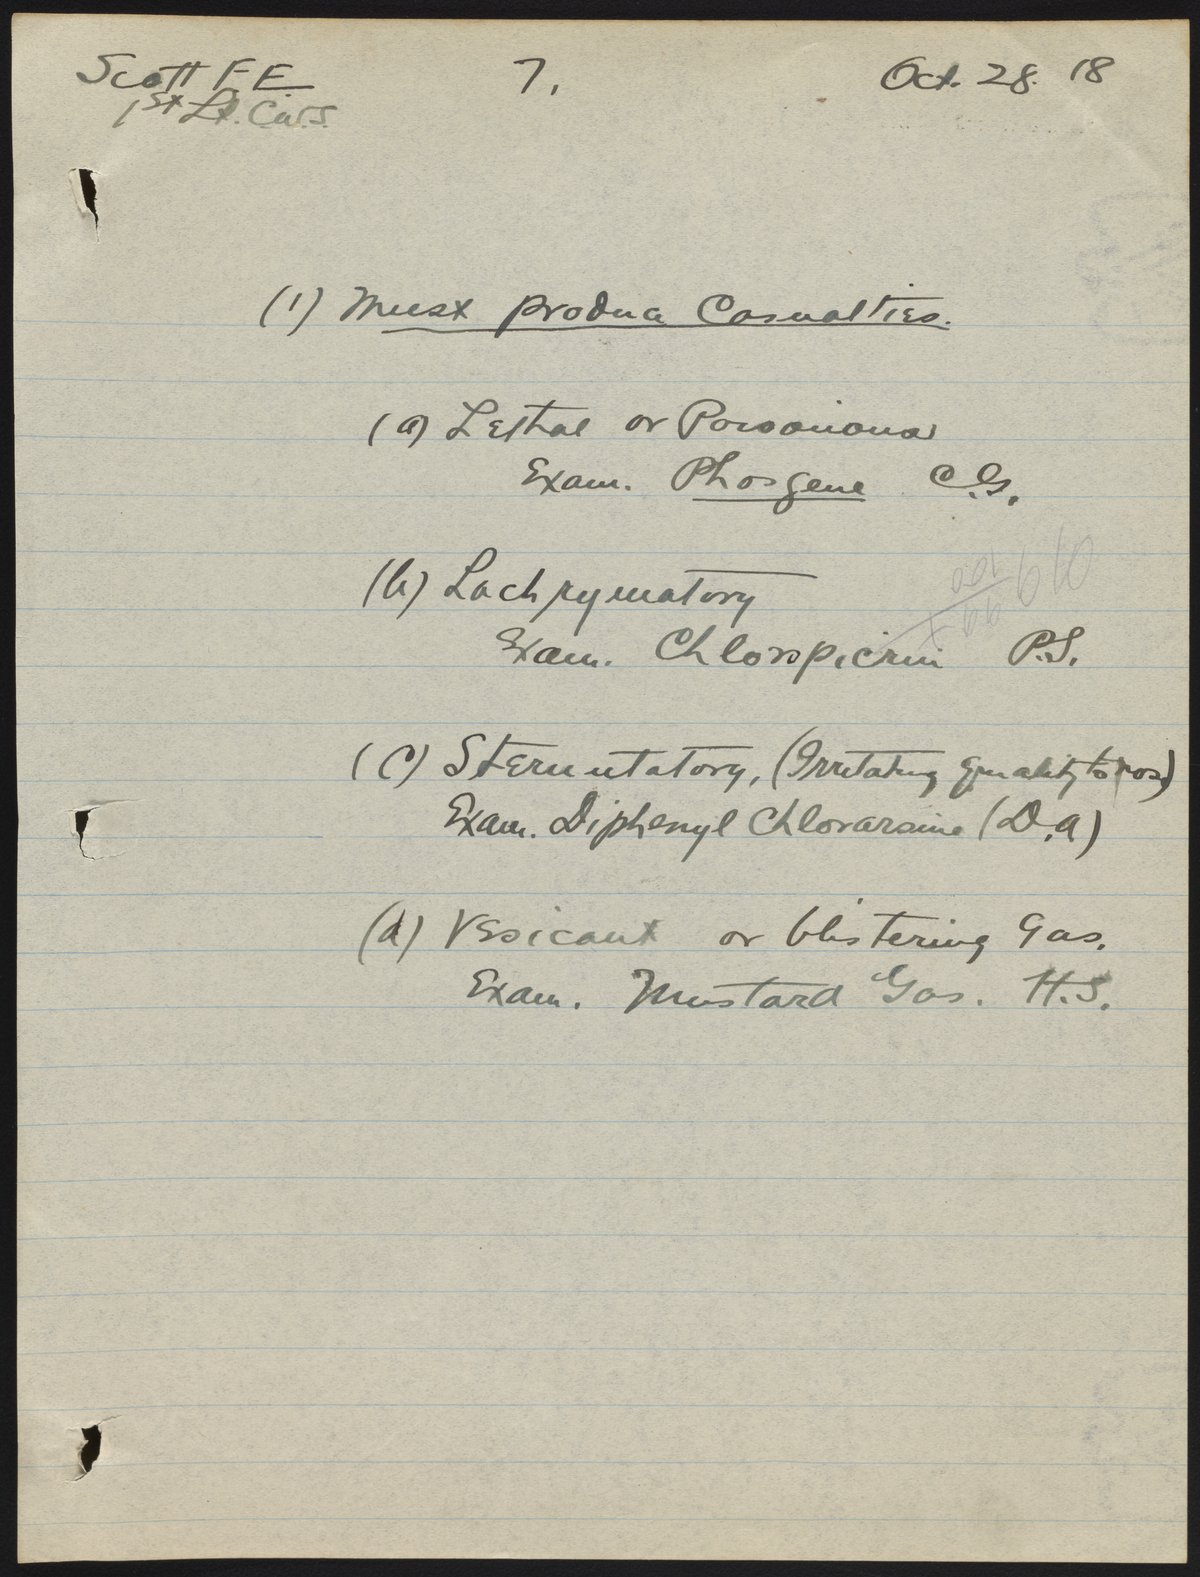 Scott F.E. 7. Oct. 28. 18
1st Lt. C.W.S.
(1) Must produce Casualties.
(a) Lethal or Poisonous
Exam. Phosgene C.G.
(b) Lachrymatory
Exam. Chlorpicrin P.S.
(c) Sternutatory, (Irritating quality to nose)
Exam. Diphenyl Chlorarsine (D.A)
(d) Vesicant or blistering Gas.
Exam. Mustard Gas. H.S.